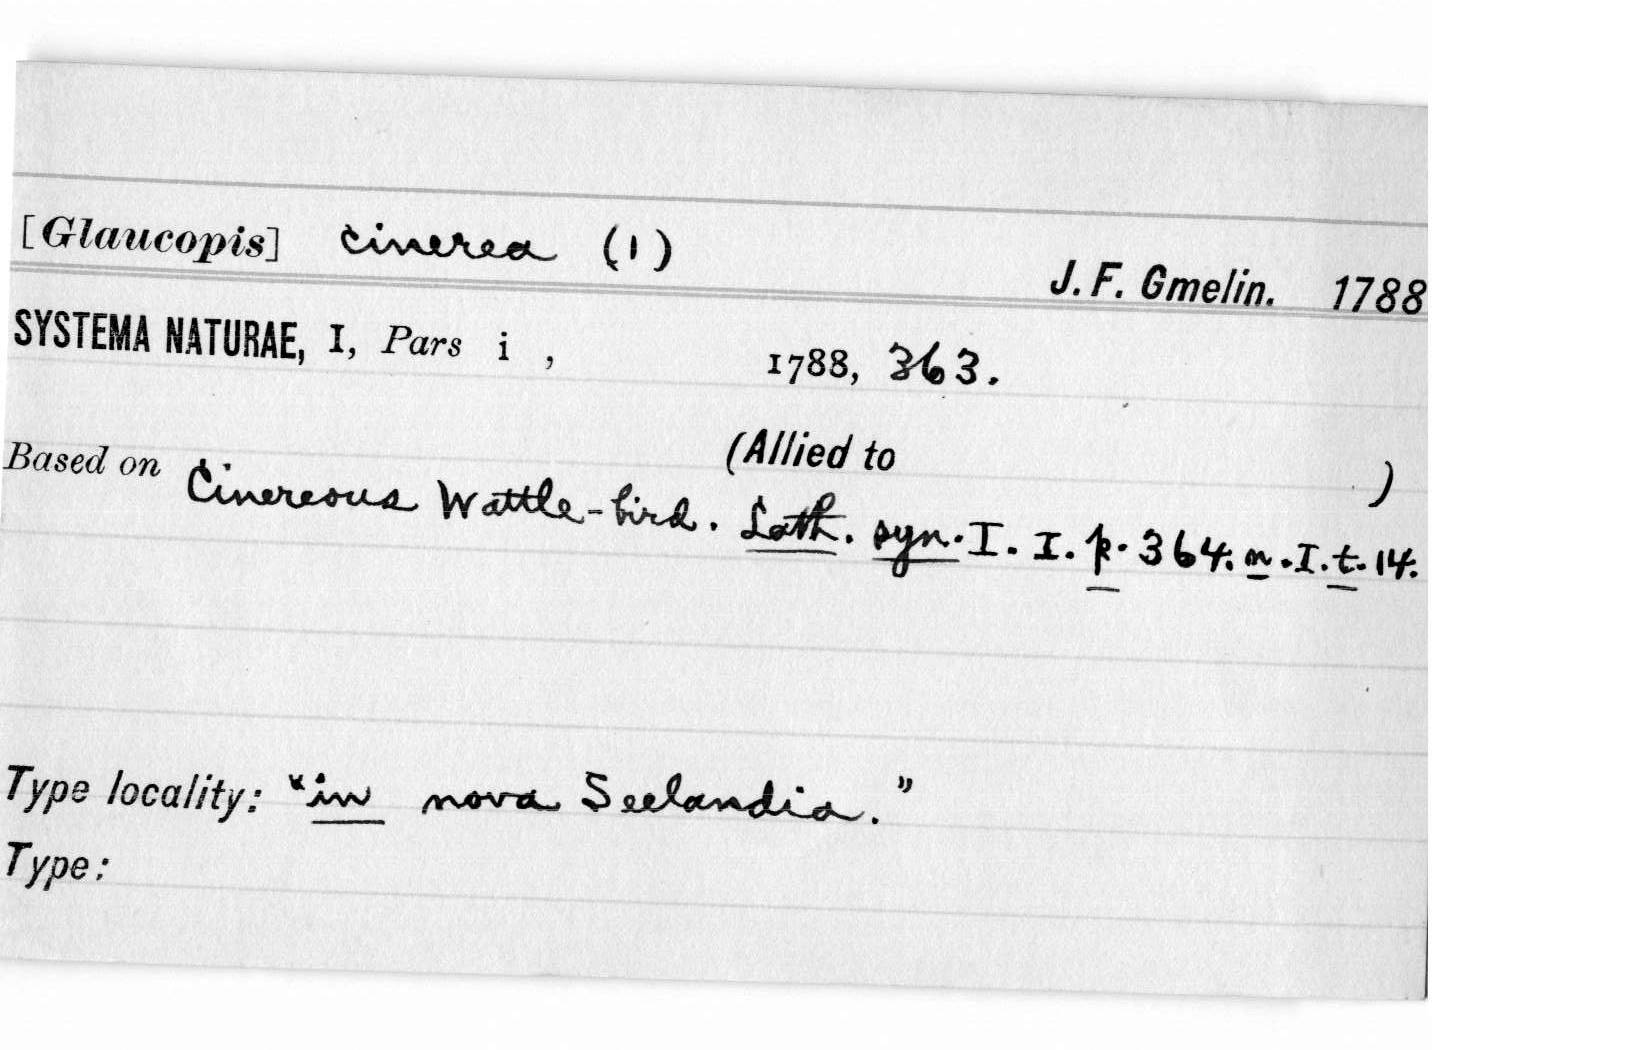 [Glaucopis] cinerea (1)
J. F. Gmelin. 1788
SYSTEMA NATURAE, I, Pars i , 1788, 363.
Based on (Allied to )
Cinereous Wattle-bird. Lath. syn. I. I. p. 364. n. I. t. 14.
Type locality: "in nova Seelandia."
Type: